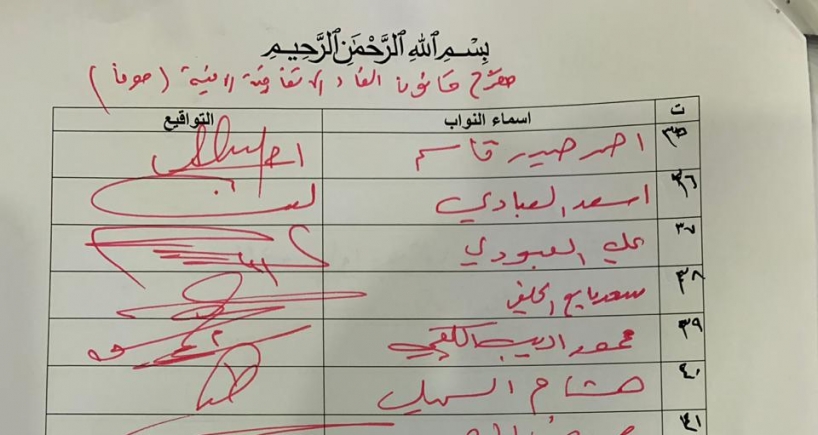 بسم الله الرحمن الرحيم
مقترح قانون الغاء الاتفاقية الامنية (صوفا)
ت اسماء النواب التواقيع
٣٥ احمد حيدر قاسم
٣٦ اسعد العبادي
٣٧ علي العبودي
٣٨ سعد
٣٩ محمد اديب
٤٠ هشام السهيل
٤١